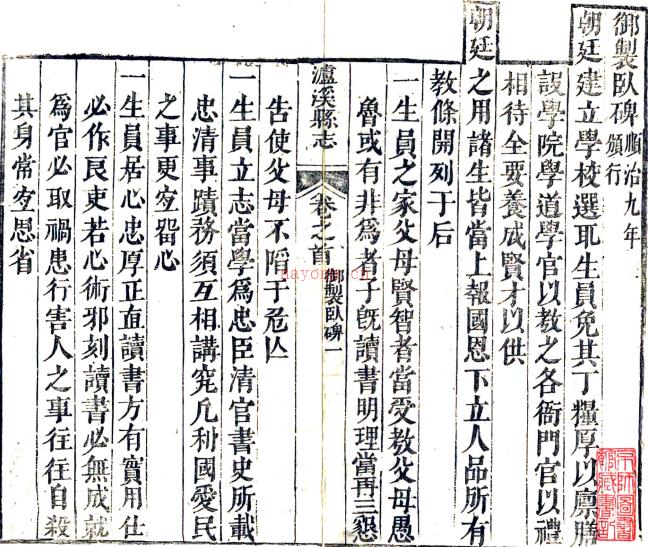 御製卧碑順治九年頒行
朝廷建立學校選取生員免其丁糧厚以廪膳
設學院學道學官以教之各衙門官以禮
相待全要養成賢才以供
朝廷之用諸生皆當上報國恩下立人品所有
教條開列于后
一生員之家父母賢智者當受教父母愚
魯或有非爲者子旣讀書明理當再三懇
瀘溪縣志
卷之首
御製卧碑一
告使父母不陷于危亾
一生員立志當學爲忠臣清官書史所載
忠清事蹟務須互相講究凡利國愛民
之事更宐畱心
一生員居心忠厚正直讀書方有實用仕
必作良吏若心術邪刻讀書必無成就
爲官必取禍患行害人之事往往自殺
其身常宐思省